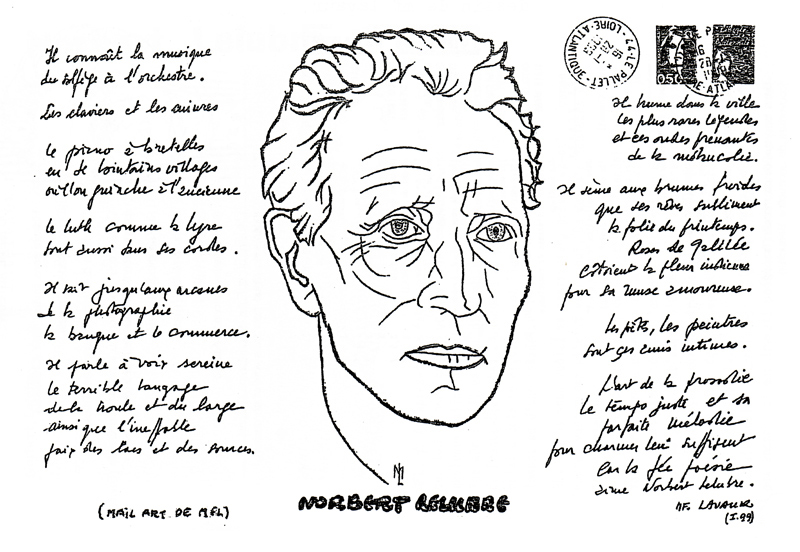 Il connaît la musique
du solfège à l'orchestre.
Les claviers et les cuivres
le piano à bretelles
en de lointains villages
où l'on guinche à l'ancienne
le luth comme la lyre
sont aussi dans ses cordes.
Il sait jusqu'aux arcanes
de la photographie
la banque et le commerce.
Il parle à voix sereine
le terrible langage
de la houle et du large
ainsi que l'ineffable
paix des lacs et des sources.
(MAIL ART DE MEL)
NORBERT LELUBRE
47-LE PALLET-LOIRE-ATLANTIQUE
0,50
Il hume dans la ville
les plus rares légendes
et ces ondes prenantes
de la mélancolie.
Il sème aux brumes froides
que ses rêves subliment
la folie du printemps.
Roses de Galilée
côtoient la fleur indienne
pour sa muse amoureuse.
Les poètes, les peintres
sont ses amis intimes.
L'art de la prosodie
le tempo juste et sa
parfaite mélodie
pour charmer leur suffisent
Car la fée poésie
aime Norbert Lelubre.
MF. LAVAUR
(I.99)